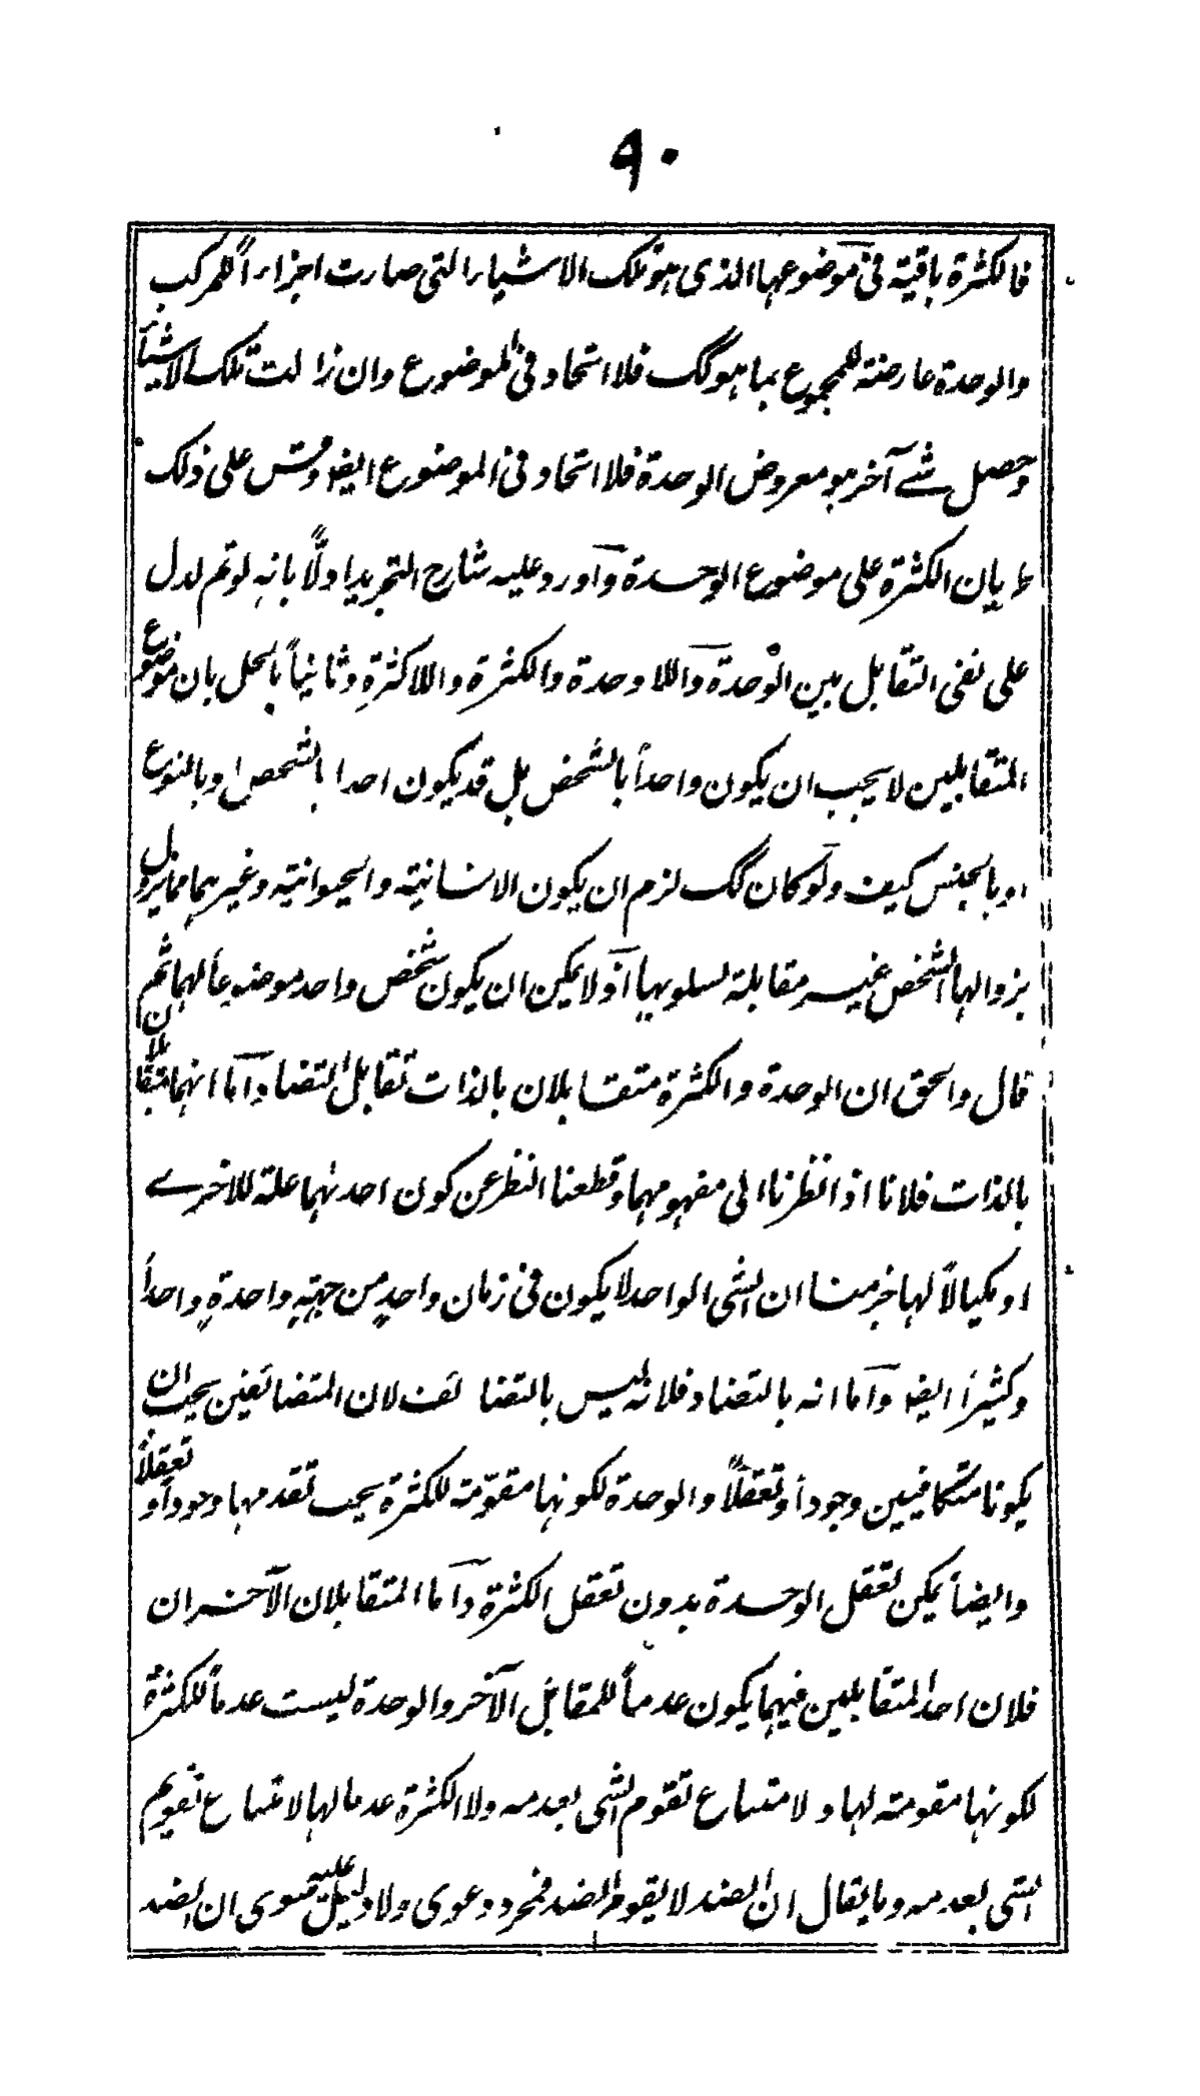 ٩٠
فالكثرة باقية فى موضوعها الذى هو تلك الاشياء التى صارت اجزاء للمركب
والوحدة عارضة للمجموع بما هو كك فلا اتحاد فى الموضوع وان زالت تلك الاشياء
وحصل شے آخر هو معروض الوحدة فلا اتحاد فى الموضوع ايضا وقس على ذلك
طريان الكثرة على موضوع الوحدة وآورد عليه شارح التجريد اولاً بانه لو تم لدل
على نفى التقابل بين الوحدة واللا وحدة والكثرة واللا كثرةِ وثانياً بالحل بان موضوع
المتقابلين لا يجب ان يكون واحداً بالشخص بل قد يكون احدا بالشخص او بالنوع
او بالجنس كيف ولو كان كك لزم ان يكون الانسانية والحيوانية وغيرهما مما يزول
بزوالها الشخص غير مقابلة لسلوبها اذ لا يمكن ان يكون شخص واحد موضوعاً لهما ثم
قال والحق ان الوحدة والكثرة متقابلان بالذات تقابل التضاد وآما انهما متقابلان
بالذات فلانا اذا نظرنا الى مفهومهما وقطعنا النظر عن كون احدهما علة للاخرے
او مكيالاً لها جزمنا ان الشى الواحد لا يكون فى زمان واحدٍ من جهةٍ واحدةٍ واحداً
وكثيراً ايضا وآما انه بالتضاد فلانه ليس بالتضائف لان المتضائفين يجب ان
يكونا متكافيين وجوداً وتعقلاً والوحدة لكونها مقوّمة للكثرة يجب تقدمها وجوداً وتعقلاً
وايضاً يمكن تعقل الوحدة بدون تعقل الكثرة وآما المتقابلان الآخران
فلان احد المتقابلين فيهما يكون عدماً للمقابل الآخر والوحدة ليست عدماً للكثرة
لكونها مقومة لها ولامتناع تقوم الشى بعدمه ولا الكثرة عدما لها لامتناع تقويم
الشى بعدمه وما يقال ان الضد لا يقوم الضد فمجرد دعوى ولا دليل عليه سوى ان الضد